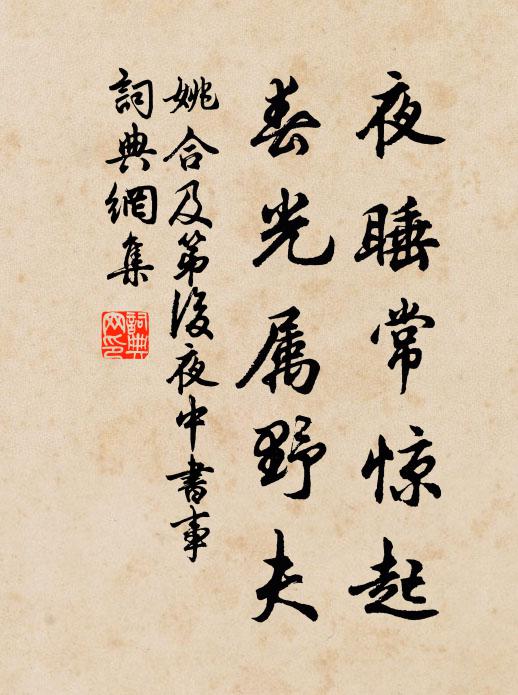 夜睡常惊起
春光属野夫
姚合及第後夜中書事
詞典網集
詞典
网印